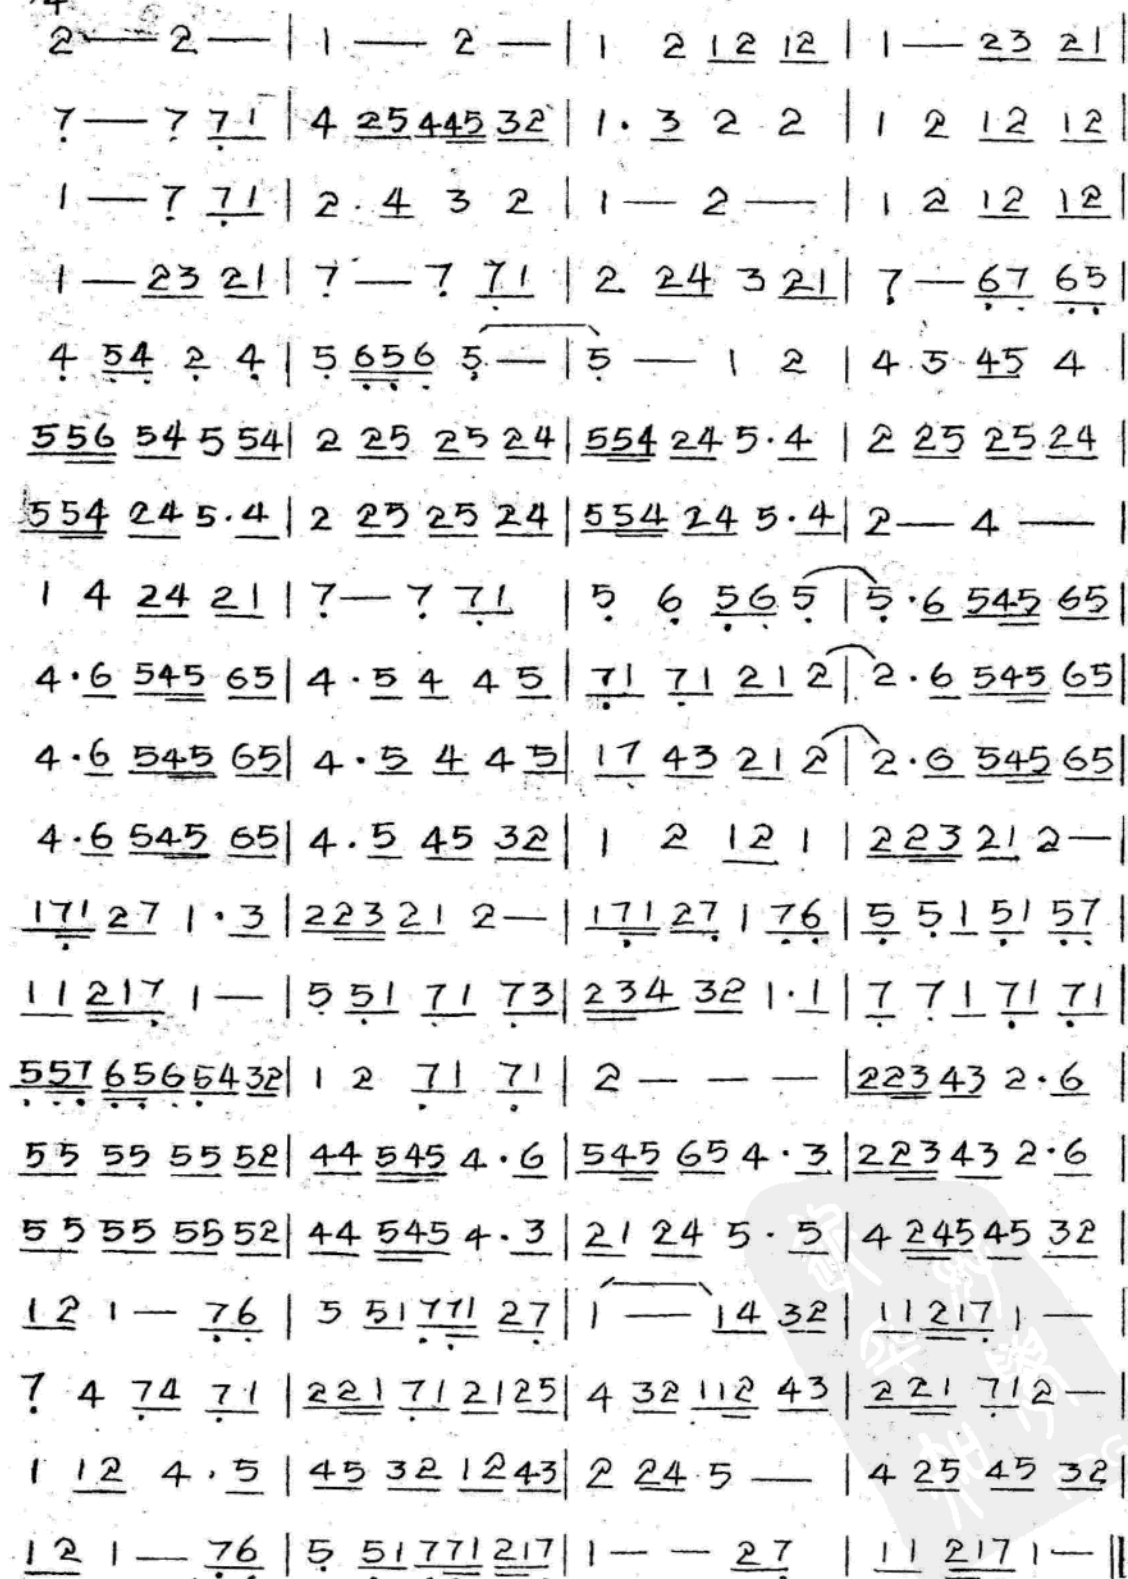 4
2 — 2 — | 1 — 2 — | 1 2 12 12 | 1 — 23 21 |
7 — 7 71 | 4 25 445 32 | 1 · 3 2 2 | 1 2 12 12 |
1 — 7 71 | 2 · 4 3 2 | 1 — 2 — | 1 2 12 12 |
1 — 23 21 | 7 — 7 71 | 2 24 3 21 | 7 — 67 65 |
4 54 2 4 | 5 656 5 — | 5 — 1 2 | 4 5 45 4 |
556 54 5 54 | 2 25 25 24 | 554 24 5 · 4 | 2 25 25 24 |
554 24 5 · 4 | 2 25 25 24 | 554 24 5 · 4 | 2 — 4 — |
1 4 24 21 | 7 — 7 71 | 5 6 56 5 | 5 · 6 545 65 |
4 · 6 545 65 | 4 · 5 4 4 5 | 71 71 21 2 | 2 · 6 545 65 |
4 · 6 545 65 | 4 · 5 4 4 5 | 17 43 21 2 | 2 · 6 545 65 |
4 · 6 545 65 | 4 · 5 45 32 | 1 2 12 1 | 223 21 2 — |
171 27 1 · 3 | 223 21 2 — | 171 27 1 76 | 5 5 1 51 57 |
11 217 1 — | 5 51 71 73 | 234 32 1 · 1 | 7 7 1 71 71 |
557 656 54 32 | 1 2 71 71 | 2 — — — | 223 43 2 · 6 |
55 55 55 52 | 44 545 4 · 6 | 545 65 4 · 3 | 223 43 2 · 6 |
55 55 55 52 | 44 545 4 · 3 | 21 24 5 · 5 | 4 245 45 32 |
12 1 — 76 | 5 51 771 27 | 1 — 14 32 | 11 217 1 — |
7 4 74 71 | 221 71 21 25 | 4 32 112 43 | 221 71 2 — |
1 12 4 · 5 | 45 32 12 43 | 2 24 5 — | 4 25 45 32 |
12 1 — 76 | 5 51 771 217 | 1 — — 27 | 11 217 1 — ‖